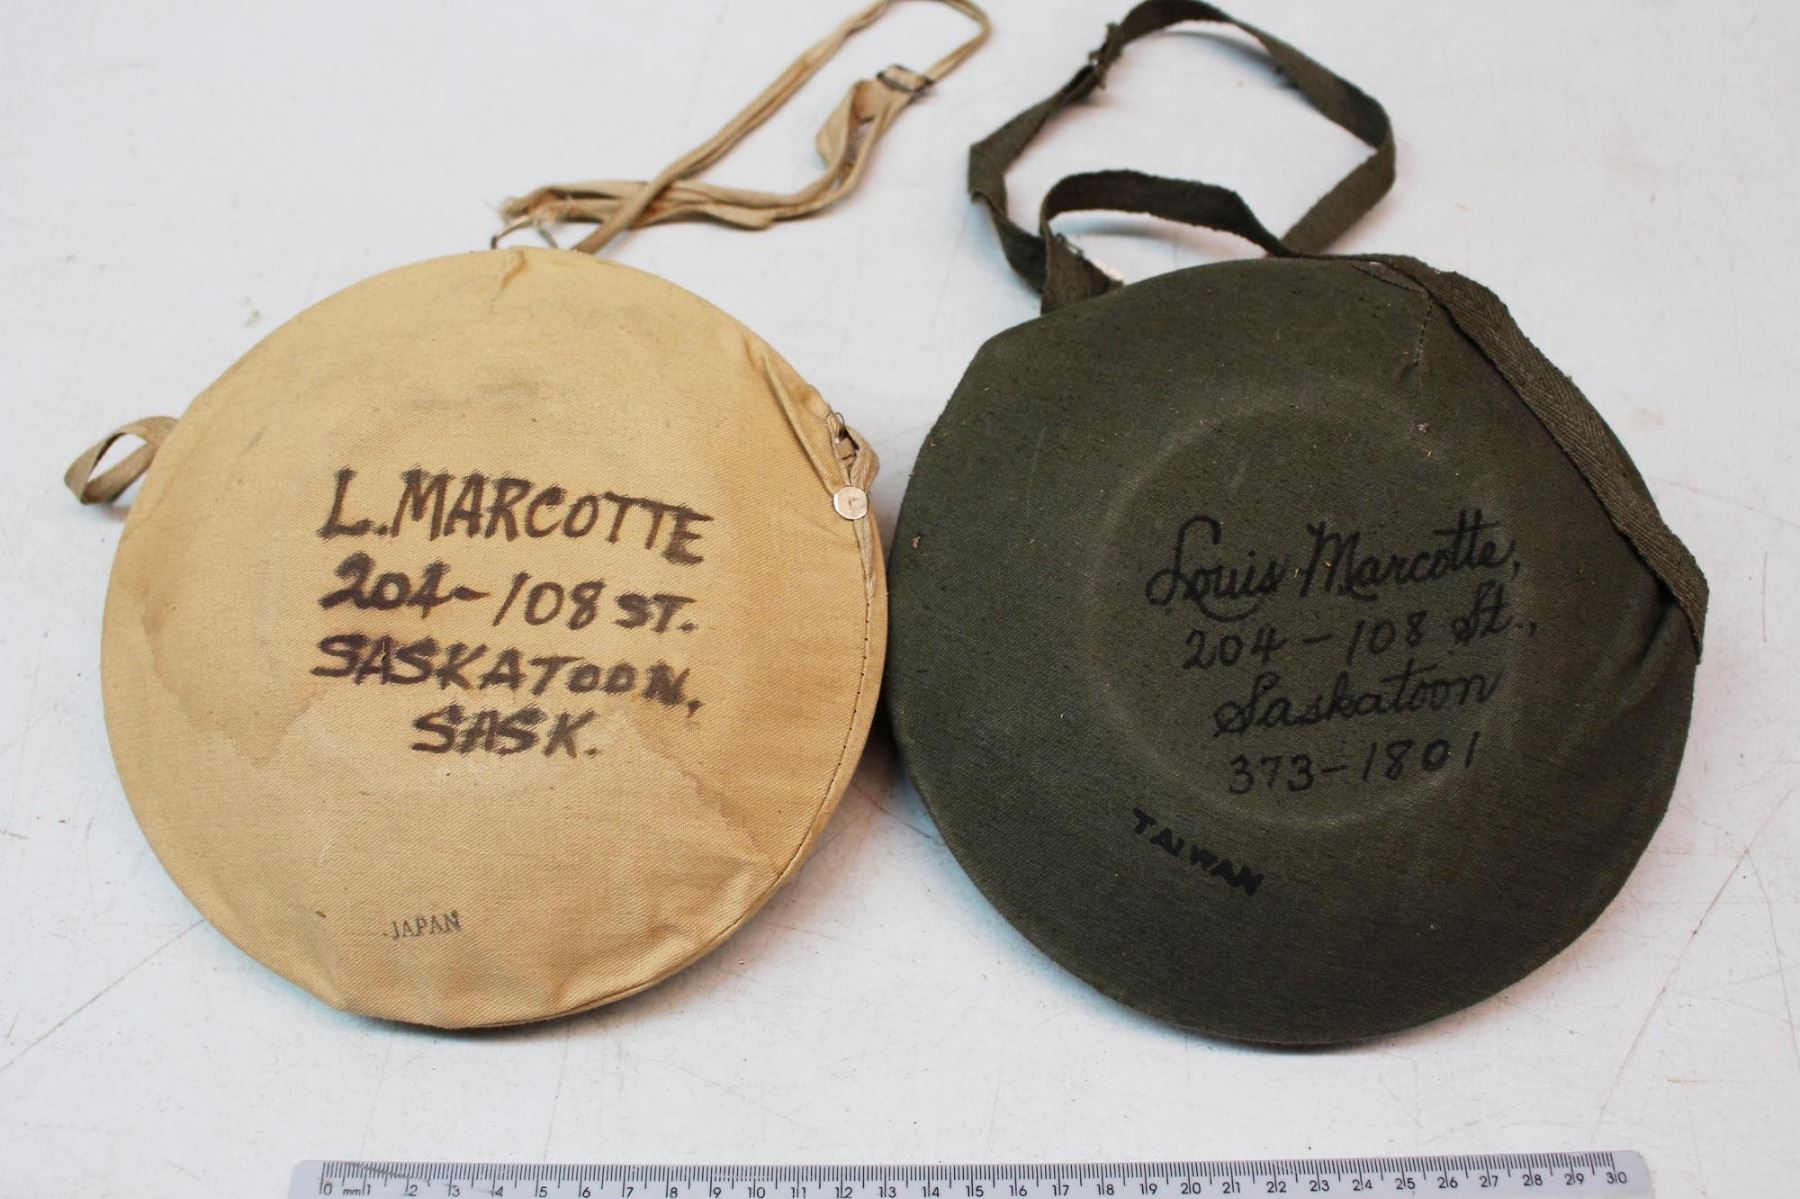 L. MARCOTTE
204-108 ST.
SASKATOON,
SASK.
JAPAN
Louis Marcotte,
204-108 St.,
Saskatoon
373-1801
TAIWAN
0 mm 1 2 3 4 5 6 7 8 9 10 11 12 13 14 15 16 17 18 19 20 21 22 23 24 25 26 27 28 29 30